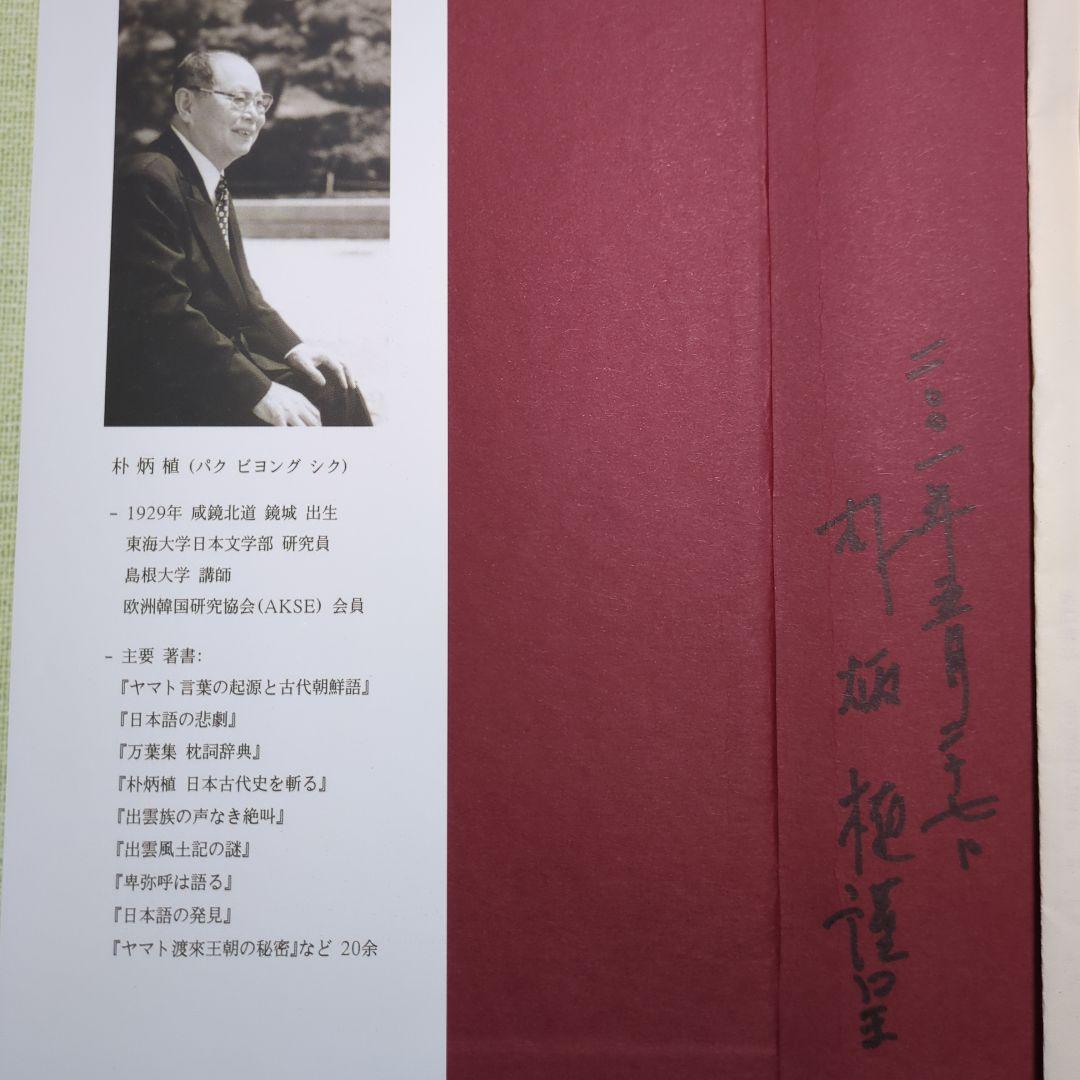 朴 炳 植 (パク ビヨング シク)
- 1929年 咸鏡北道 鏡城 出生
東海大学日本文学部 研究員
島根大学 講師
欧洲韓国研究協会(AKSE) 会員
- 主要 著書:
『ヤマト言葉の起源と古代朝鮮語』
『日本語の悲劇』
『万葉集 枕詞辞典』
『朴炳植 日本古代史を斬る』
『出雲族の声なき絶叫』
『出雲風土記の謎』
『卑弥呼は語る』
『日本語の発見』
『ヤマト渡來王朝の秘密』など 20余
二〇〇一年五月二十七日
朴炳植 謹呈